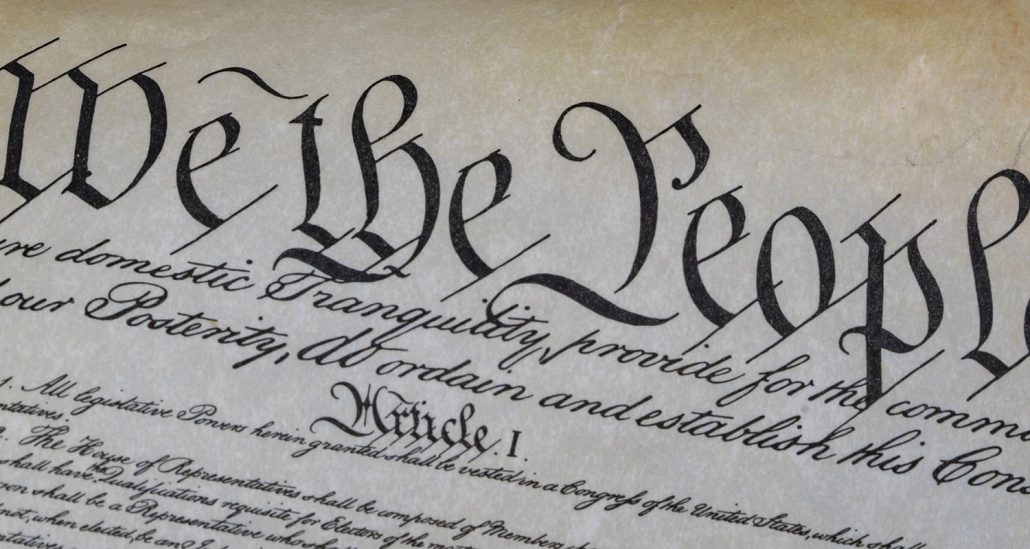 We the People
ure domestic Tranquility, provide for the comm
our Posterity, do ordain and establish this Cons
Article. I.
1. All legislative Powers herein granted shall be vested in a Congress of the United States, which shall
ntatives.
2. The House of Representatives shall be composed of Members
shall have the Qualifications requisite for Electors of the mo
on shall be a Representative who shal
not, when elected, be an